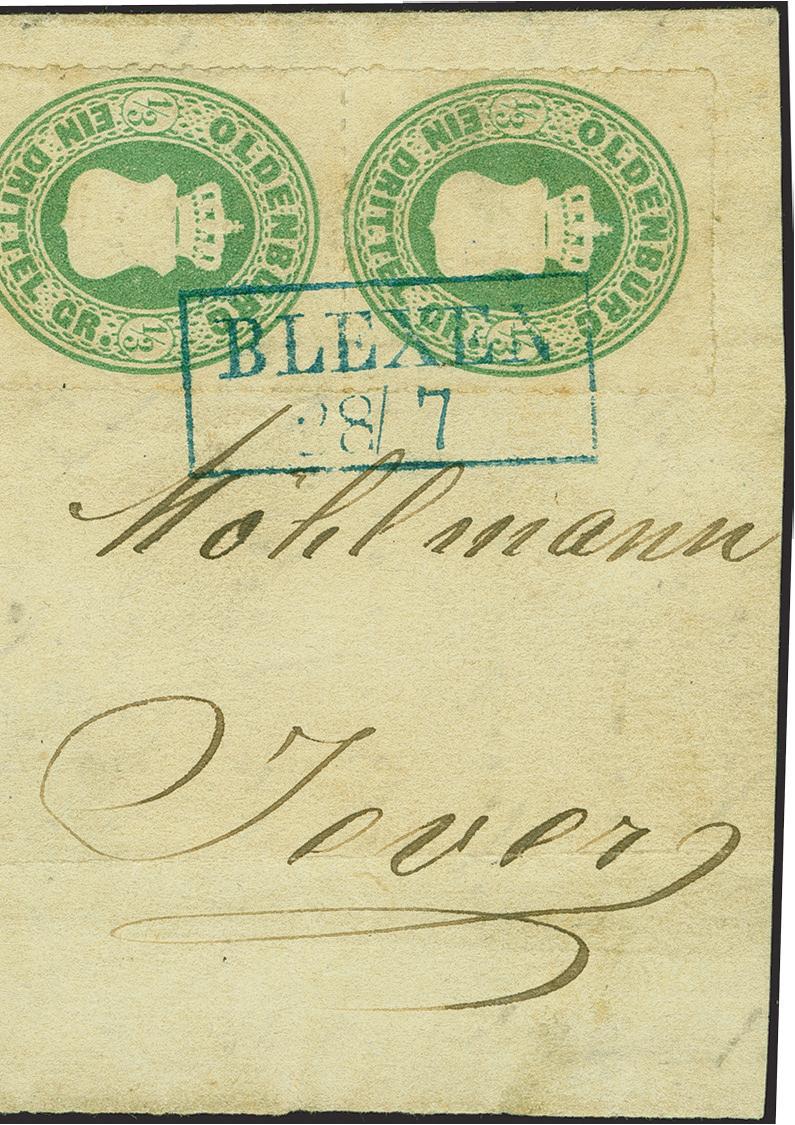 OLDENBURG EIN DRITTEL GR. 1/3 1/3
OLDENBURG EIN DRITTEL GR. 1/3 1/3
BLEXEN
28/7
Möhlmann
Jever